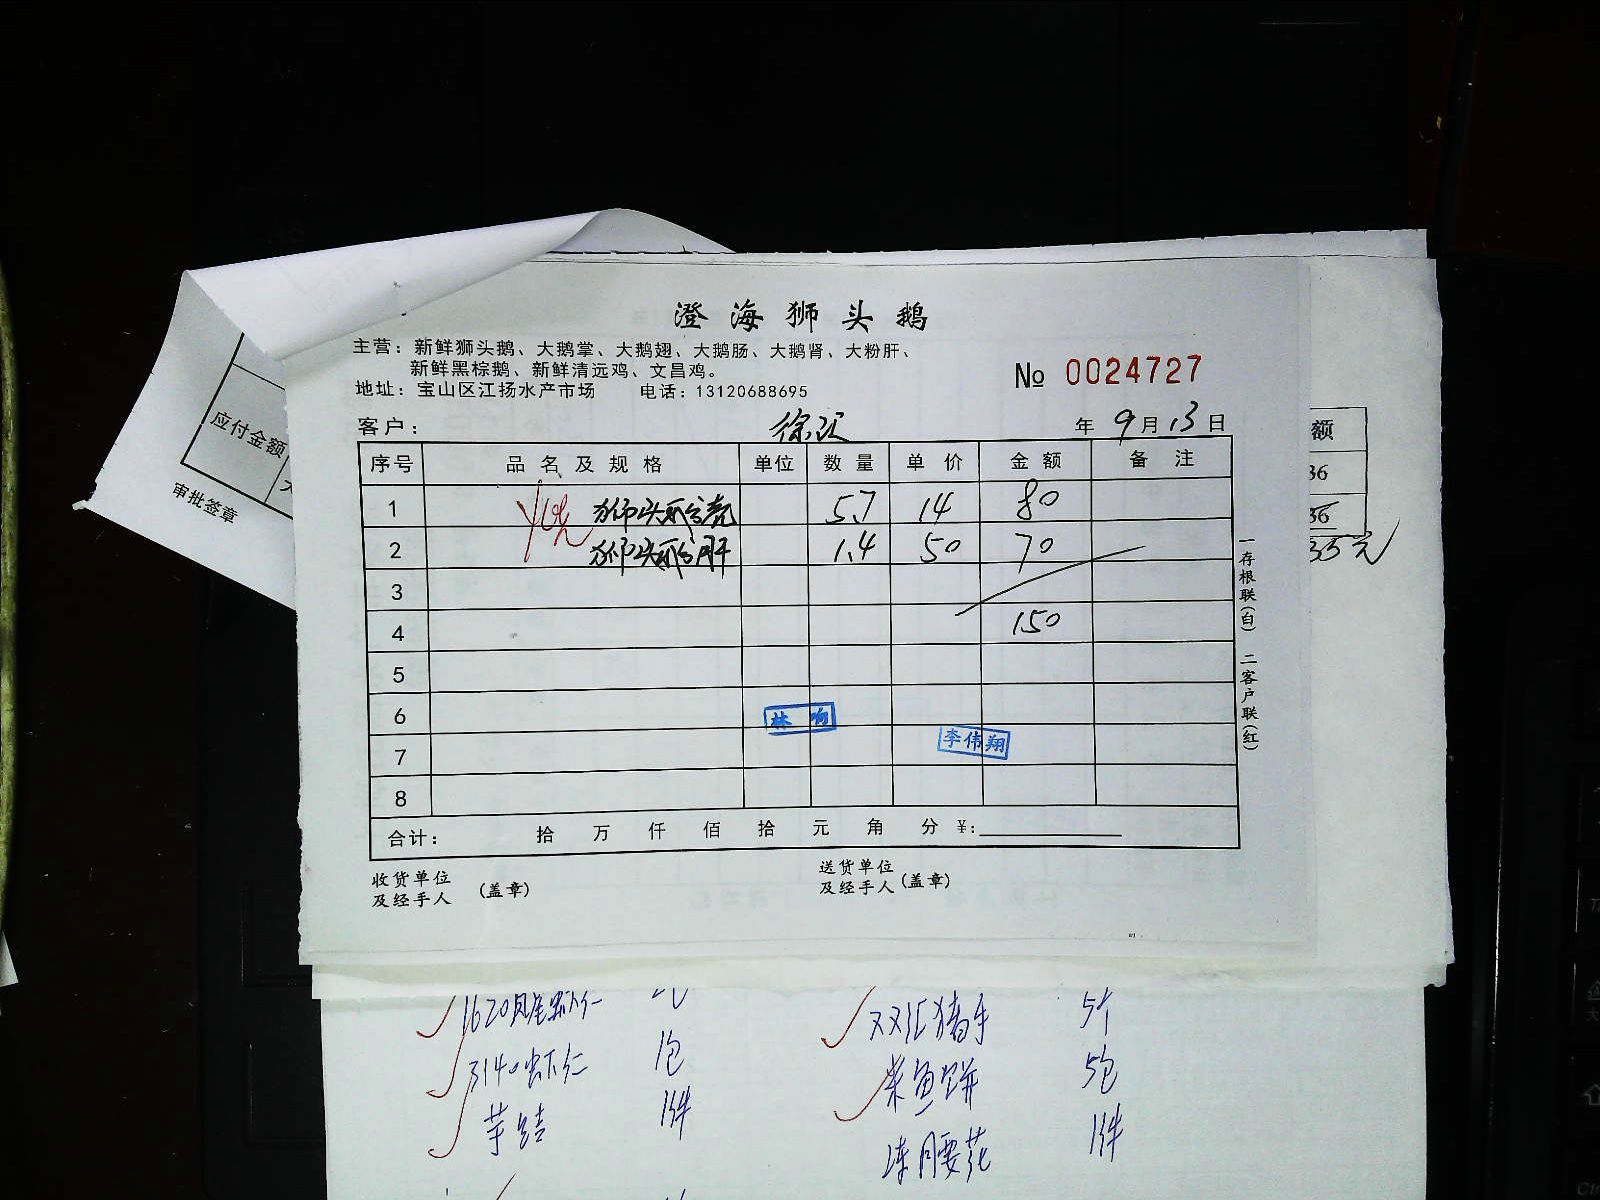 澄海狮头鹅
主营：新鲜狮头鹅、大鹅掌、大鹅翅、大鹅肠、大鹅肾、大粉肝、
新鲜黑棕鹅、新鲜清远鸡、文昌鸡。
地址：宝山区江扬水产市场 电话：13120688695
№ 0024727
客户： 徐汇 年 9 月 13 日
序号 品名及规格 单位 数量 单价 金额 备注
1 狮头鹅壳 5.7 14 80
2 狮头鹅肝 1.4 50 70
3
4 150
5
6
林
7
李伟翔
8
合计： 拾 万 仟 佰 拾 元 角 分 ¥:
收货单位
及经手人 (盖章)
送货单位
及经手人 (盖章)
一存根联(白) 二客户联(红)
应付金额
审批签章
额
36
36
35元
1620凤尾虾仁
3140虾仁 1包
芋结 1件
双汇猪手 5个
米鱼饼 5包
冻腰花 1件